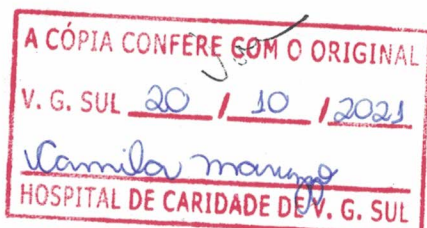 A CÓPIA CONFERE COM O ORIGINAL
V. G. SUL 20 / 10 / 2021
Camila
HOSPITAL DE CARIDADE DE V. G. SUL